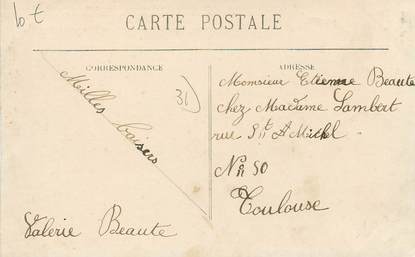 lot
CARTE POSTALE
CORRESPONDANCE
ADRESSE
Milles baisers
31
Valerie Beaute
Monsieur Etienne Beaute
chez Madame Lambert
rue St Michel
No 50
Toulouse